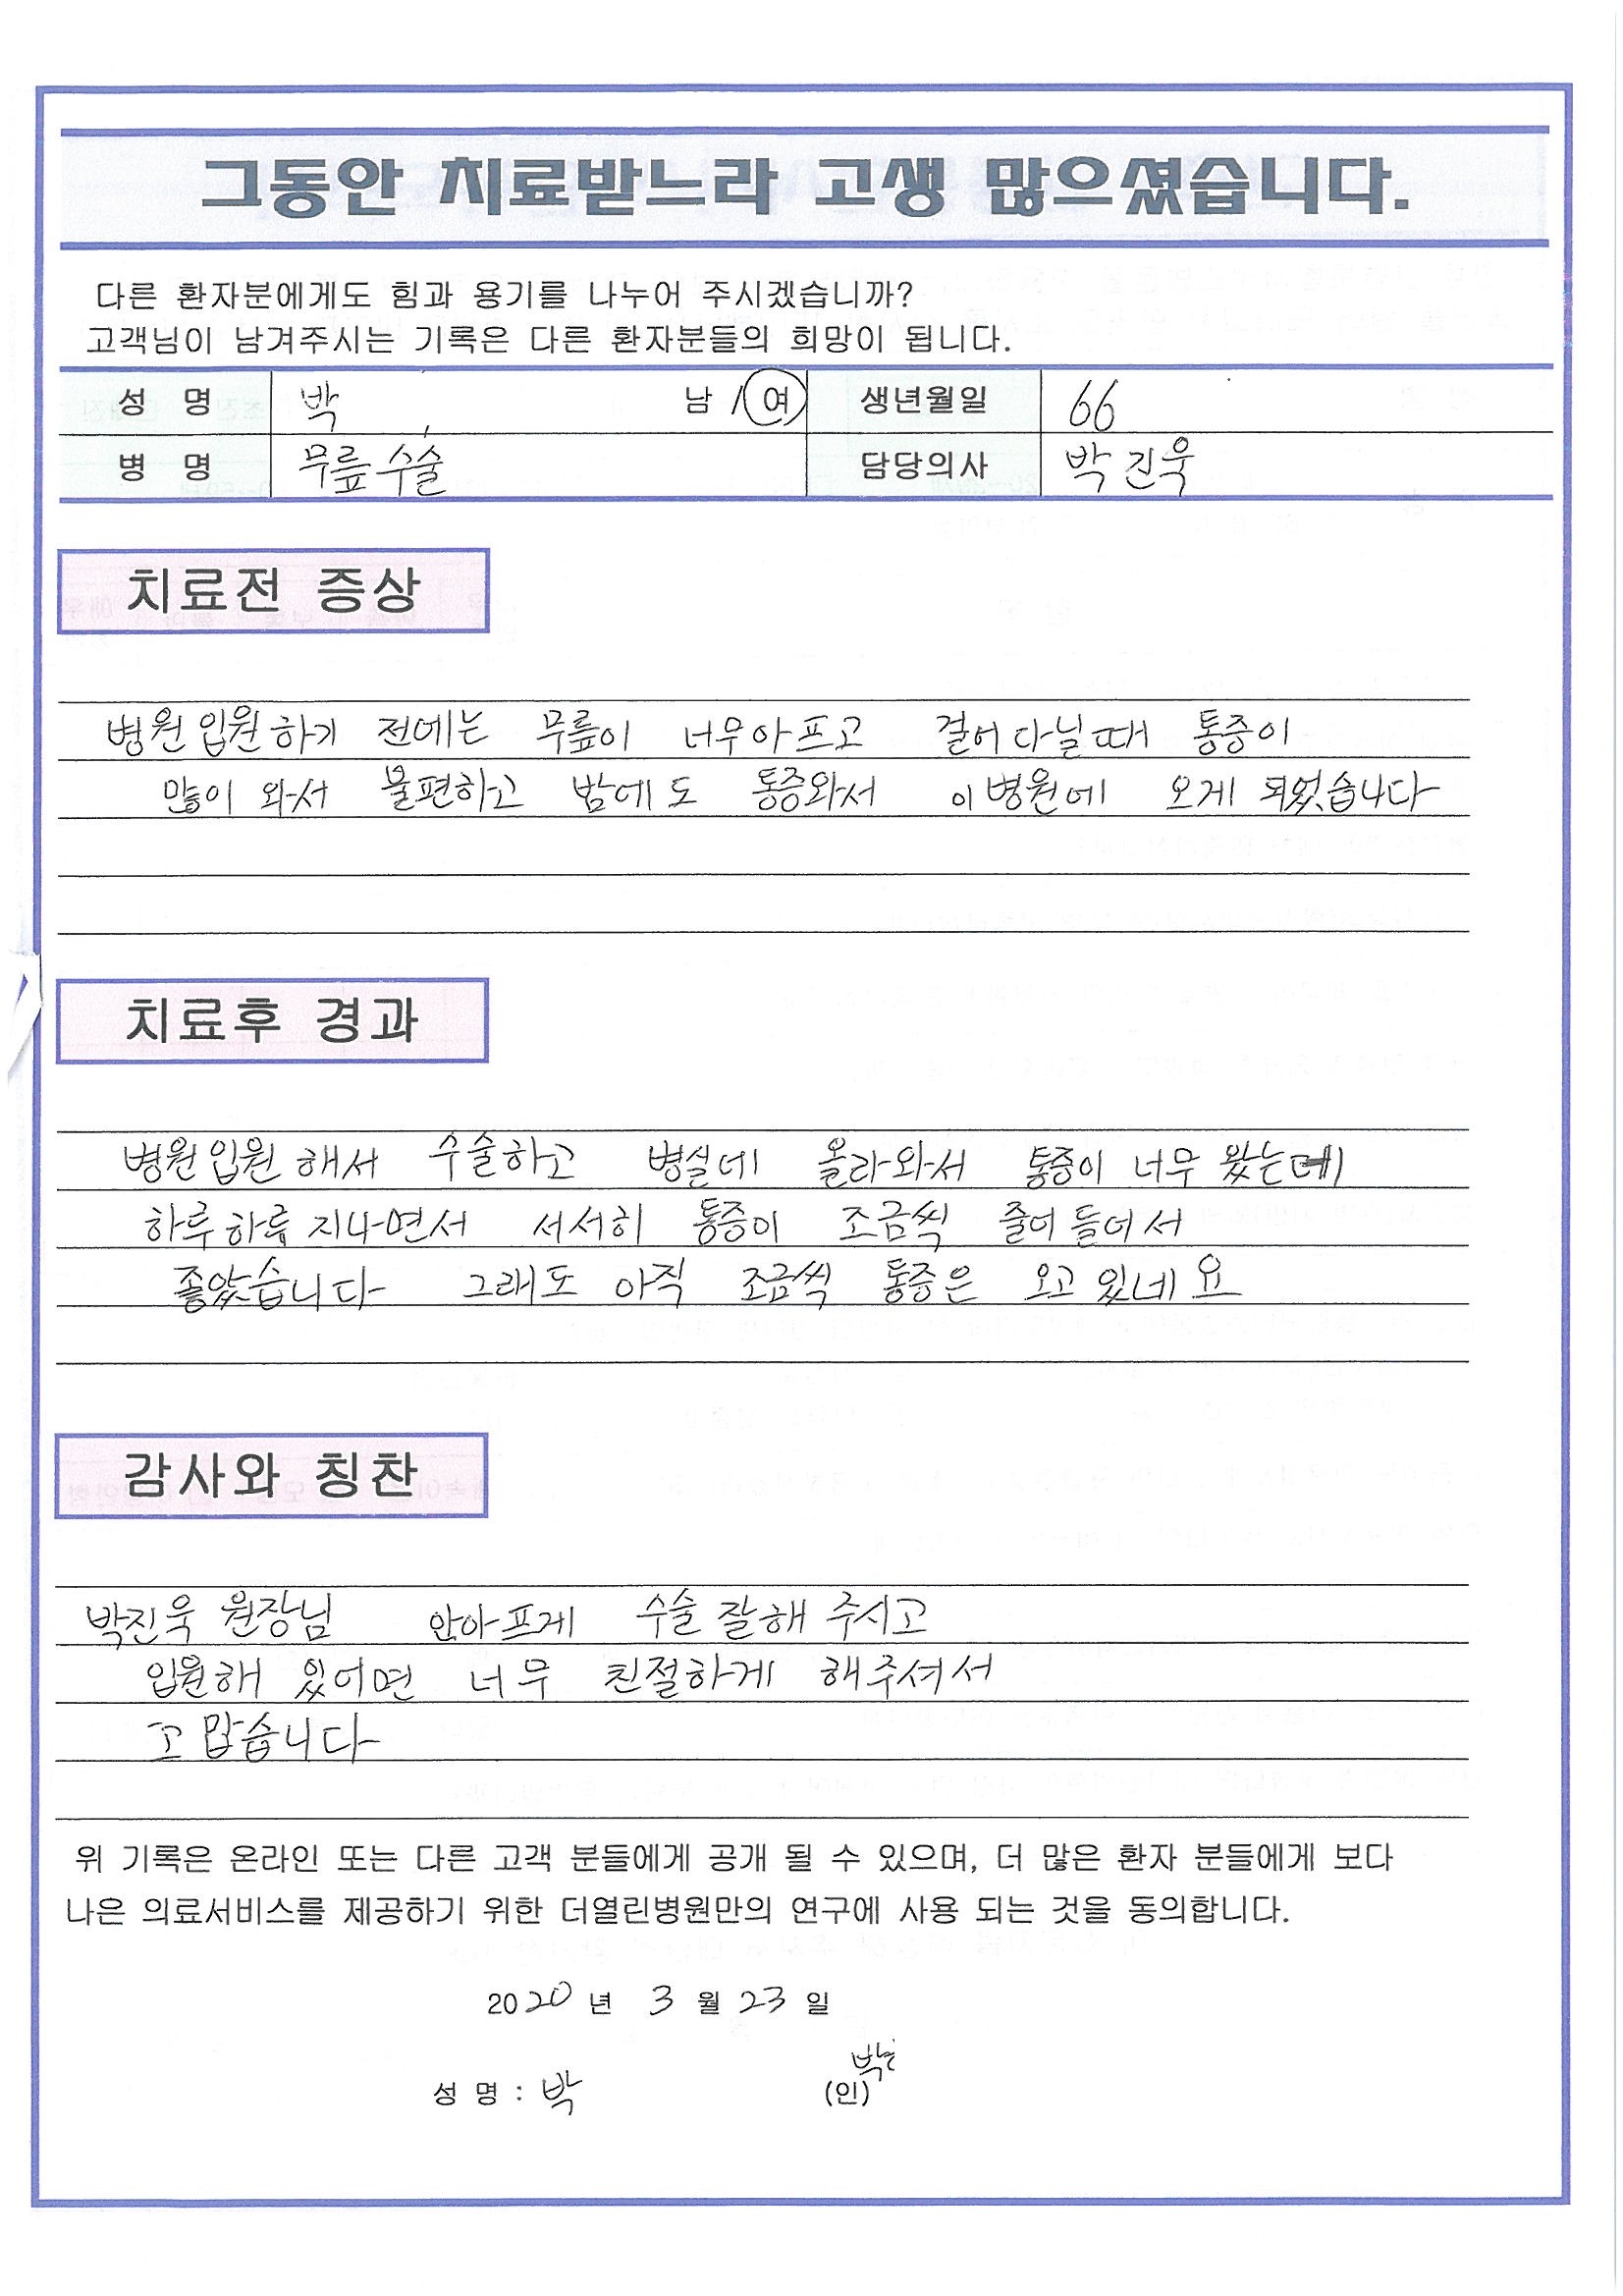 그동안 치료받느라 고생 많으셨습니다.
다른 환자분에게도 힘과 용기를 나누어 주시겠습니까?
고객님이 남겨주시는 기록은 다른 환자분들의 희망이 됩니다.
성 명 박 남 / 여 생년월일 66
병 명 무릎수술 담당의사 박진욱
치료전 증상
병원입원하기 전에는 무릎이 너무아프고 걸어다닐때 통증이
많이 와서 불편하고 밤에도 통증와서 이병원에 오게 되었습니다
치료후 경과
병원입원 해서 수술하고 병실데 올라와서 통증이 너무 왔는데
하루하루 지나면서 서서히 통증이 조금씩 줄어들어서
좋았습니다 그래도 아직 조금씩 통증은 오고 있네요
감사와 칭찬
박진욱 원장님 안아프게 수술 잘해 주시고
입원해 있어면 너무 친절하게 해주셔서
고맙습니다
위 기록은 온라인 또는 다른 고객 분들에게 공개 될 수 있으며, 더 많은 환자 분들에게 보다
나은 의료서비스를 제공하기 위한 더열린병원만의 연구에 사용 되는 것을 동의합니다.
2020 년 3 월 23 일
성 명 : 박 (인) 박